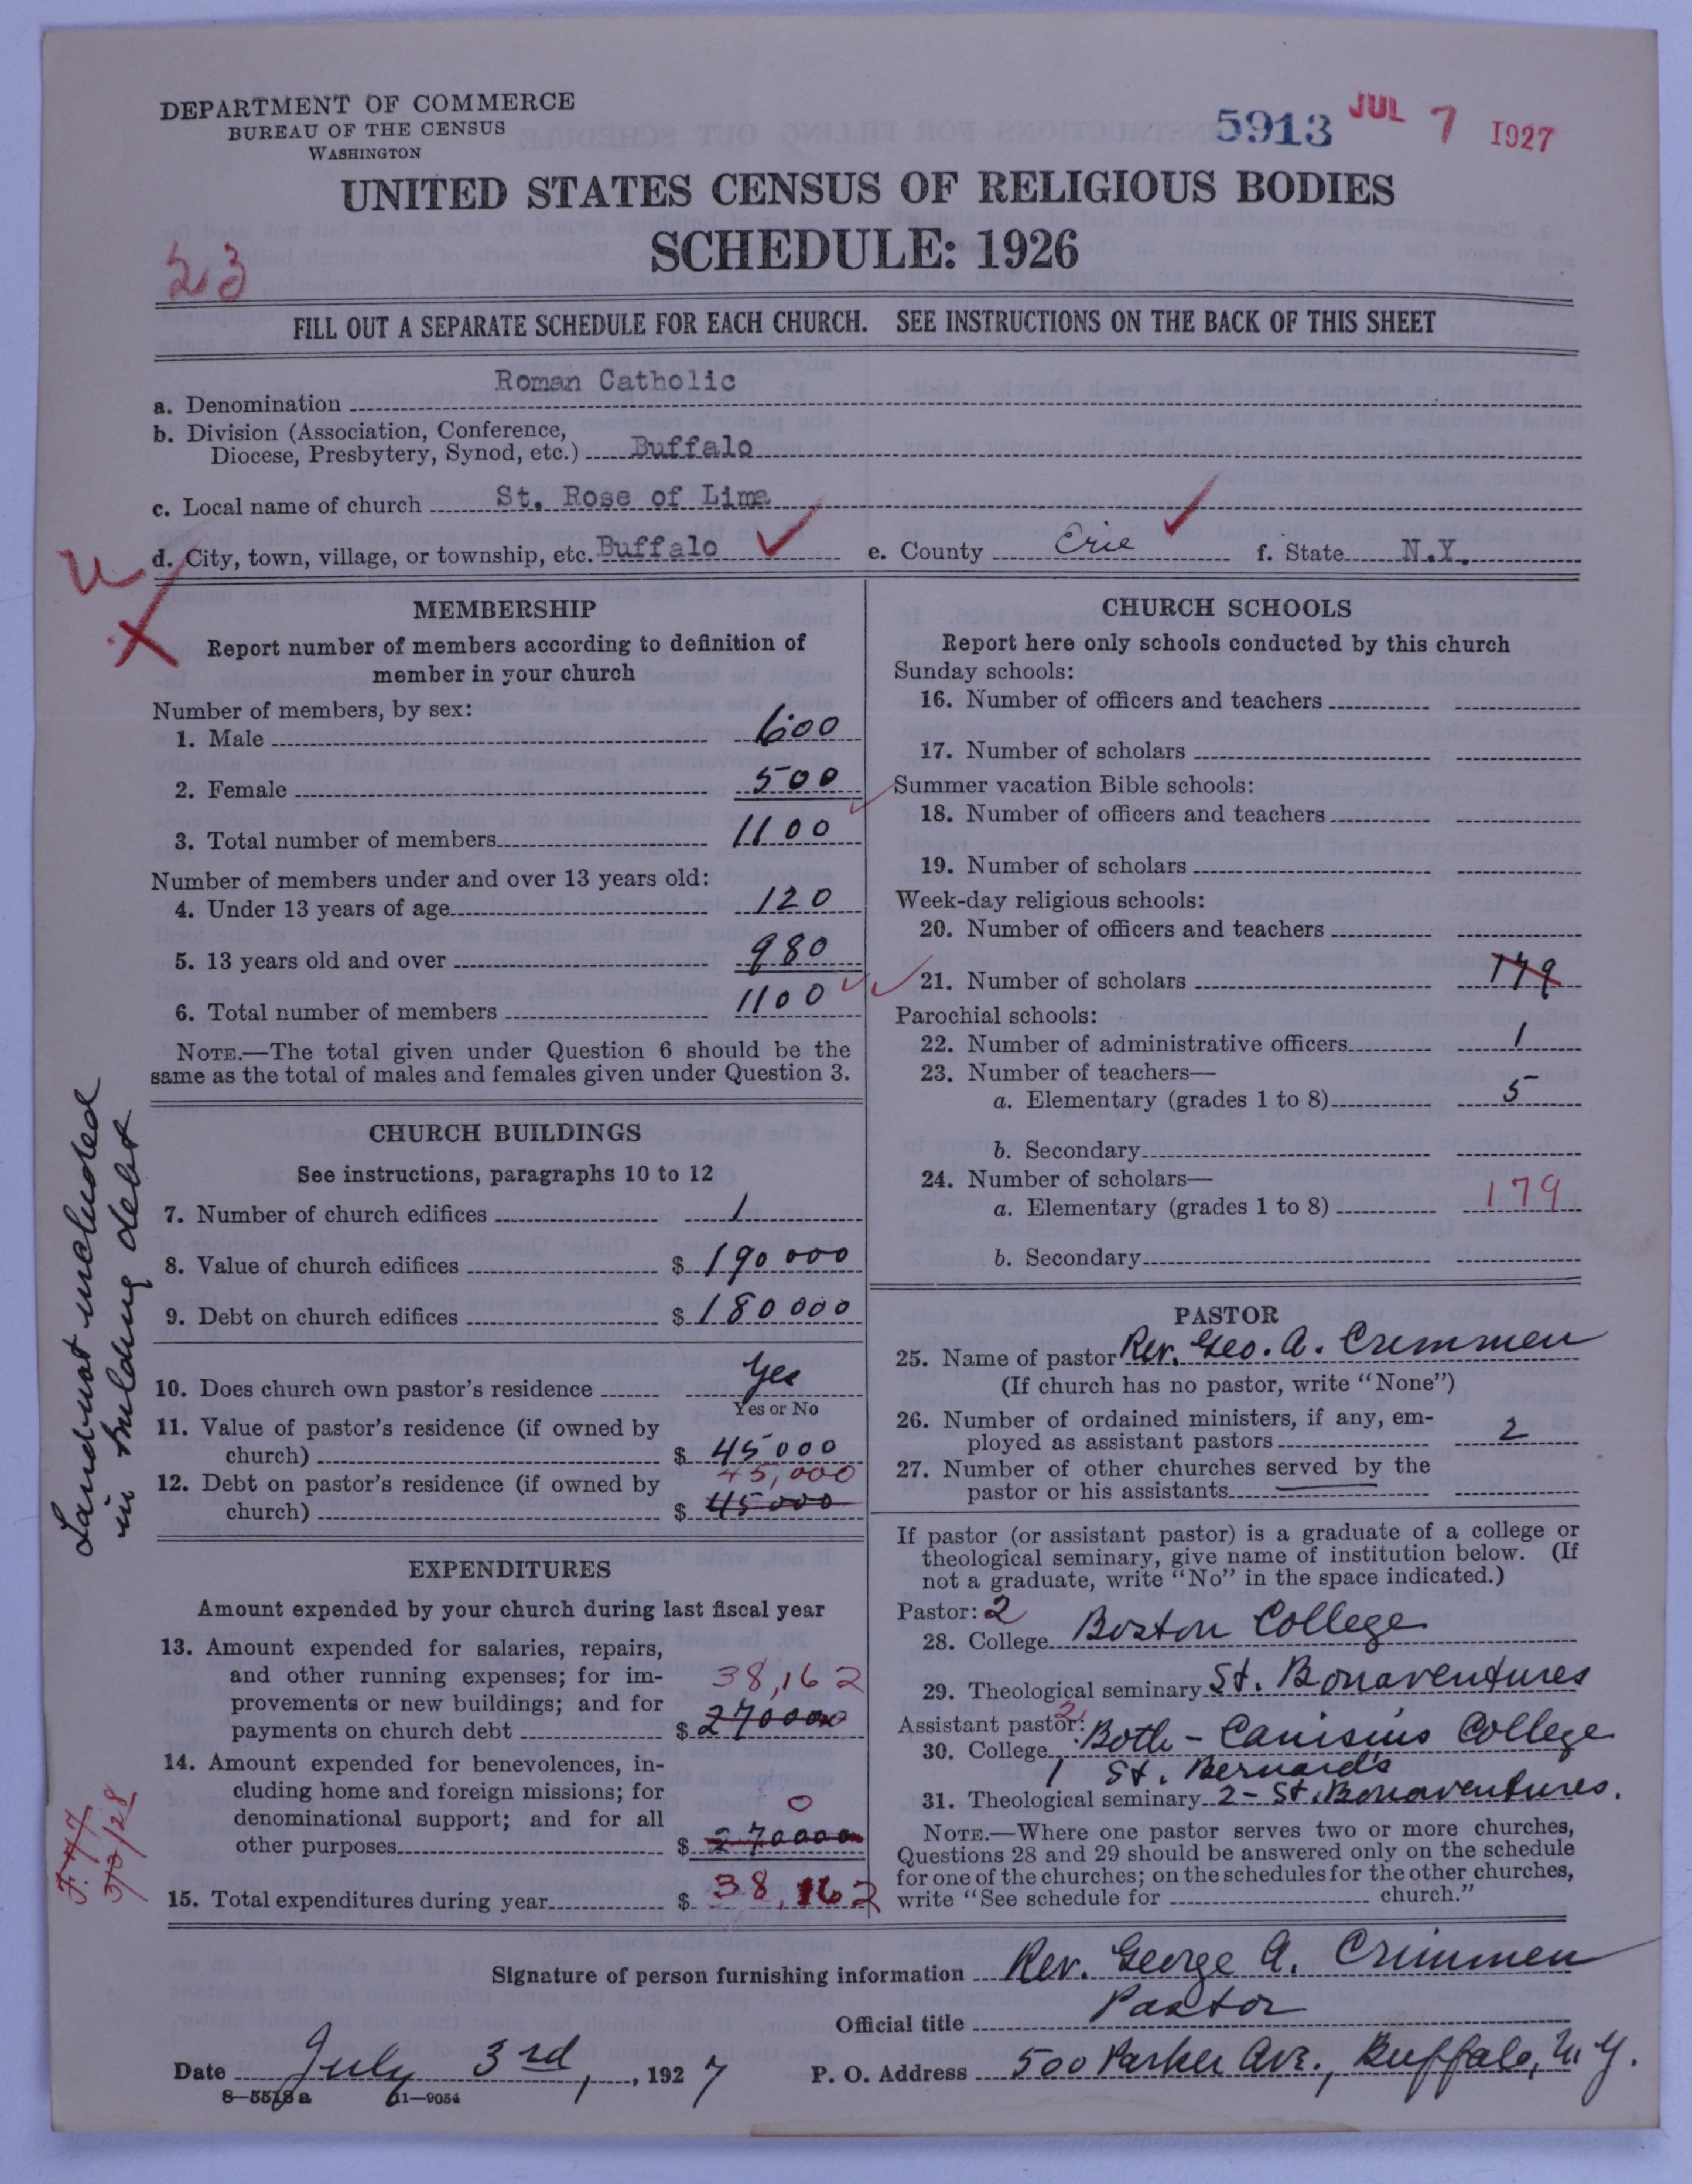 DEPARTMENT OF COMMERCE
BUREAU OF THE CENSUS
WASHINGTON
5913 JUL 7 1927
UNITED STATES CENSUS OF RELIGIOUS BODIES
SCHEDULE: 1926
23
FILL OUT A SEPARATE SCHEDULE FOR EACH CHURCH. SEE INSTRUCTIONS ON THE BACK OF THIS SHEET
a. Denomination Roman Catholic
b. Division (Association, Conference,
Diocese, Presbytery, Synod, etc.) Buffalo
c. Local name of church St. Rose of Lima
d. City, town, village, or township, etc. Buffalo e. County Erie f. State N.Y.
MEMBERSHIP
Report number of members according to definition of
member in your church
Number of members, by sex:
1. Male 600
2. Female 500
3. Total number of members 1100
Number of members under and over 13 years old:
4. Under 13 years of age 120
5. 13 years old and over 980
6. Total number of members 1100
NOTE.—The total given under Question 6 should be the
same as the total of males and females given under Question 3.
CHURCH BUILDINGS
See instructions, paragraphs 10 to 12
7. Number of church edifices 1
8. Value of church edifices $ 190000
9. Debt on church edifices $ 180000
10. Does church own pastor's residence Yes
Yes or No
11. Value of pastor's residence (if owned by
church) $ 45000
45,000
12. Debt on pastor's residence (if owned by
church) $ 45000
Land not included
in building debt
EXPENDITURES
Amount expended by your church during last fiscal year
13. Amount expended for salaries, repairs,
and other running expenses; for im-
provements or new buildings; and for
38,162
payments on church debt $ 270000
14. Amount expended for benevolences, in-
cluding home and foreign missions; for
denominational support; and for all
0
other purposes $ 270000
15. Total expenditures during year $ 38,162
3/3/28
CHURCH SCHOOLS
Report here only schools conducted by this church
Sunday schools:
16. Number of officers and teachers
17. Number of scholars
Summer vacation Bible schools:
18. Number of officers and teachers
19. Number of scholars
Week-day religious schools:
20. Number of officers and teachers
21. Number of scholars 179
Parochial schools:
22. Number of administrative officers 1
23. Number of teachers—
a. Elementary (grades 1 to 8) 5
b. Secondary
24. Number of scholars—
a. Elementary (grades 1 to 8) 179
b. Secondary
PASTOR
25. Name of pastor Rev. Geo. A. Crimmen
(If church has no pastor, write "None")
26. Number of ordained ministers, if any, em-
ployed as assistant pastors 2
27. Number of other churches served by the
pastor or his assistants
If pastor (or assistant pastor) is a graduate of a college or
theological seminary, give name of institution below. (If
not a graduate, write "No" in the space indicated.)
Pastor: 2
28. College Boston College
29. Theological seminary St. Bonaventures
Assistant pastor: 2
30. College Both - Canisius College
1 St. Bernard's
31. Theological seminary 2 - St. Bonaventures.
NOTE.—Where one pastor serves two or more churches,
Questions 28 and 29 should be answered only on the schedule
for one of the churches; on the schedules for the other churches,
write "See schedule for church."
Signature of person furnishing information Rev. George A. Crimmen
Official title Pastor
Date July 3rd, 1927 P. O. Address 500 Parker Ave., Buffalo, N.Y.
8—5518a 11—9054